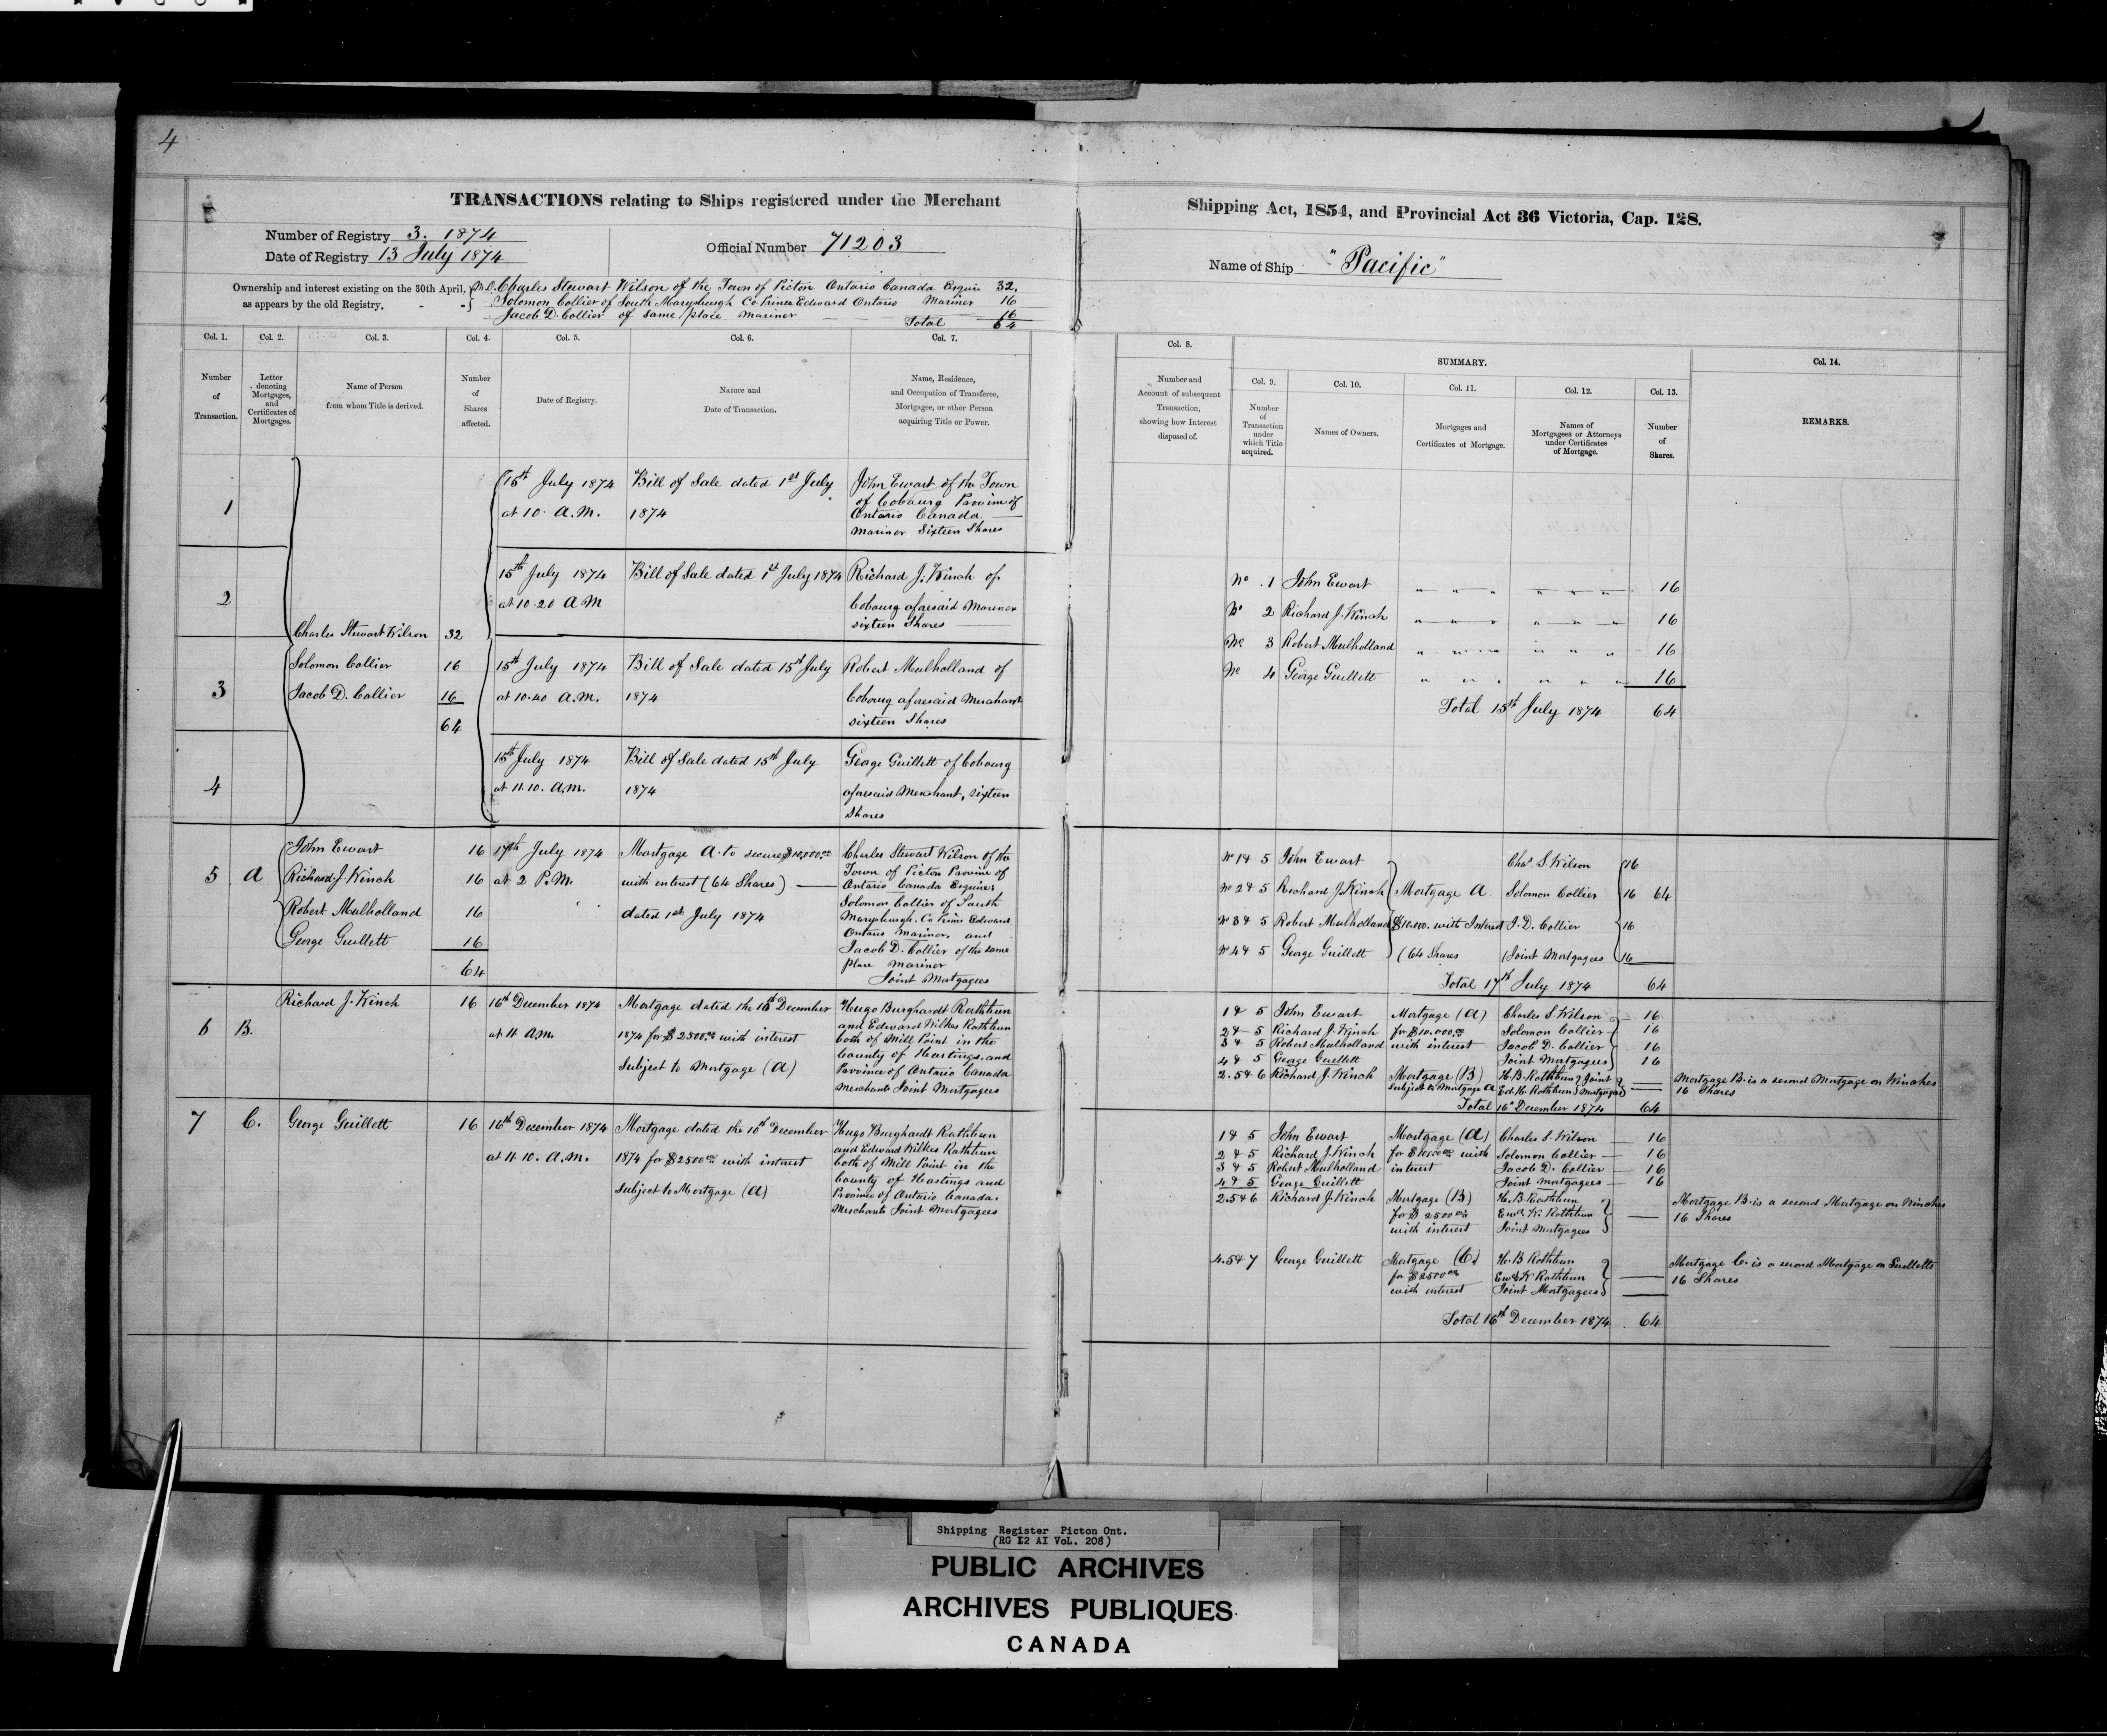 4
TRANSACTIONS relating to Ships registered under the Merchant
Number of Registry 3. 1874
Date of Registry 13 July 1874
Official Number 71203
Ownership and interest existing on the 30th April,
as appears by the old Registry.
Charles Stewart Wilson of the Town of Picton Ontario Canada Esquire 32.
Solomon Collier of South Marysburgh Co Prince Edward Ontario Mariner 16
Jacob D. Collier of same place Mariner 16
Total 64
Col. 1. Col. 2. Col. 3. Col. 4. Col. 5. Col. 6. Col. 7.
Number
of
Transaction.
Letter
denoting
Mortgages,
and
Certificates of
Mortgages.
Name of Person
from whom Title is derived.
Number
of
Shares
affected.
Date of Registry.
Nature and
Date of Transaction.
Name, Residence,
and Occupation of Transferee,
Mortgagee, or other Person
acquiring Title or Power.
1
15th July 1874
at 10. A.M.
Bill of Sale dated 1st July
1874
John Ewart of the Town
of Cobourg Province of
Ontario Canada
Mariner Sixteen Shares
2
15th July 1874
at 10.20 A M
Bill of Sale dated 1st July 1874
Richard J. Kinch of
Cobourg aforesaid Mariner
sixteen Shares
Charles Stewart Wilson 32
Solomon Collier 16
Jacob D. Collier 16
64
3
15th July 1874
at 10.40 A.M.
Bill of Sale dated 15th July
1874
Robert Mulholland of
Cobourg aforesaid Merchant
sixteen Shares
4
15th July 1874
at 11.10. A.M.
Bill of Sale dated 15th July
1874
George Guillett of Cobourg
aforesaid Merchant, sixteen
Shares
5 A
John Ewart 16
Richard J. Kinch 16
Robert Mulholland 16
George Guillett 16
64
17th July 1874
at 2 P.M.
Mortgage A. to secure $10,000.00
with interest (64 Shares)
dated 1st July 1874
Charles Stewart Wilson of the
Town of Picton Province of
Ontario Canada Esquire
Solomon Collier of South
Marysburgh. Co Prince Edward
Ontario Mariner, and
Jacob D. Collier of the same
place Mariner
Joint Mortgagees
6 B.
Richard J. Kinch 16
16th December 1874
at 11 A.M.
Mortgage dated the 10th December
1874 for $2500.00 with interest
Subject to Mortgage (A)
Hugo Burghardt Rathbun
and Edward Wilkes Rathbun
both of Mill Point in the
County of Hastings, and
Province of Ontario Canada
Merchants Joint Mortgagees
7 C.
George Guillett 16
16th December 1874
at 11.10. A.M.
Mortgage dated the 10th December
1874 for $2500.00 with interest
Subject to Mortgage (A)
Hugo Burghardt Rathbun
and Edward Wilkes Rathbun
both of Mill Point in the
County of Hastings and
Province of Ontario Canada.
Merchants Joint Mortgagees
Shipping Act, 1854, and Provincial Act 36 Victoria, Cap. 128.
Name of Ship "Pacific"
Col. 8.
Number and
Account of subsequent
Transaction,
showing how Interest
disposed of.
SUMMARY.
Col. 9. Col. 10. Col. 11. Col. 12. Col. 13.
Number
of
Transaction
under
which Title
acquired.
Names of Owners.
Mortgages and
Certificates of Mortgage.
Names of
Mortgagees or Attorneys
under Certificates
of Mortgage.
Number
of
Shares.
Col. 14.
REMARKS.
No. 1 John Ewart " " " " " " 16
No 2 Richard J. Kinch " " " " " " 16
No. 3 Robert Mulholland " " " " " " 16
No 4 George Guillett " " " " " " 16
Total 15th July 1874 64
No 1 & 5 John Ewart Chas S. Wilson 16
No 2 & 5 Richard J. Kinch Mortgage A Solomon Collier 16 64
No 3 & 5 Robert Mulholland $10.000. with Interest J. D. Collier 16
No 4 & 5 George Guillett (64 Shares Joint Mortgagees 16
Total 17th July 1874 64
1 & 5 John Ewart Mortgage (A) Charles S. Wilson 16
2 & 5 Richard J. Kinch for $10.000.00 Solomon Collier 16
3 & 5 Robert Mulholland with interest Jacob D. Collier 16
4 & 5 George Guillett Joint Mortgagees 16
2.5 & 6 Richard J. Kinch Mortgage (B) H. B. Rathbun Joint
Subject to Mortgage A Ed. W. Rathbun Mortgagees
Mortgage B. is a second Mortgage on Kinches
16 Shares
Total 16th December 1874 64
1 & 5 John Ewart Mortgage (A) Charles S. Wilson 16
2 & 5 Richard J. Kinch for $10.000.00 with Solomon Collier 16
3 & 5 Robert Mulholland interest Jacob D. Collier 16
4 & 5 George Guillett Joint Mortgagees 16
2.5 & 6 Richard J. Kinch Mortgage (B) H. B. Rathbun
for $2500.00 Ewd W. Rathbun
with interest Joint Mortgagees
Mortgage B. is a second Mortgage on Kinches
16 Shares
4.5 & 7 George Guillett Mortgage (C.) H. B Rathbun
for $2500.00 Ewd W Rathbun
with interest Joint Mortgagees
Mortgage C. is a second Mortgage on Guilletts
16 Shares
Total 16th December 1874 64
Shipping Register Picton Ont.
(RG 12 AI VoL. 208)
PUBLIC ARCHIVES
ARCHIVES PUBLIQUES
CANADA